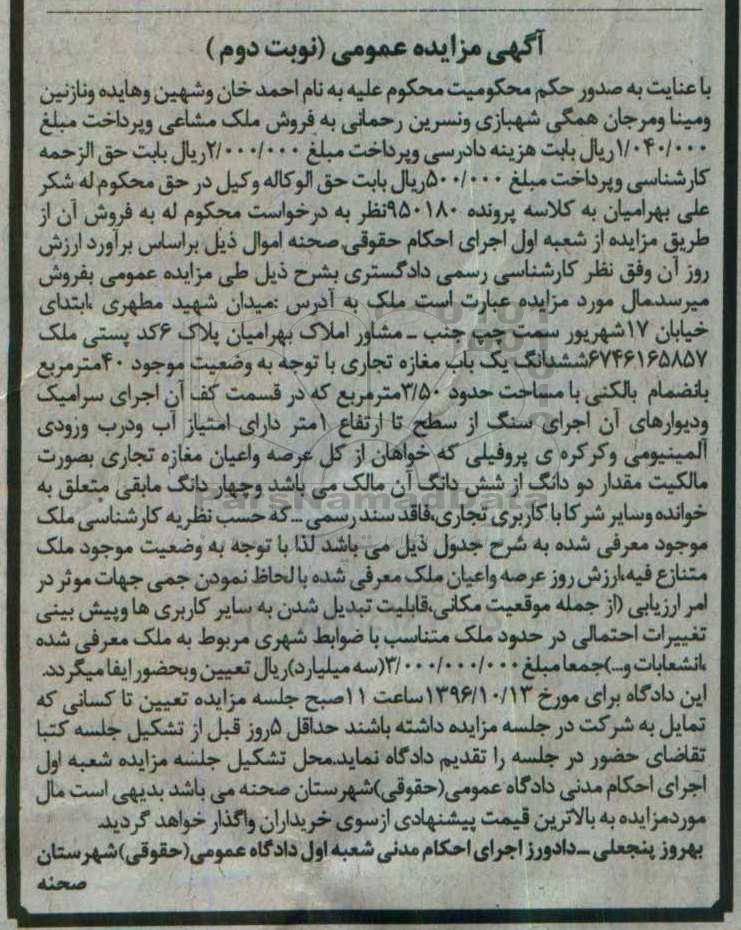 آگهی مزایده عمومی (نوبت دوم )
با عنایت به صدور حکم محکومیت محکوم علیه به نام احمد خان وشهین وهایده ونازنین
ومینا ومرجان همگی شهبازی ونسرین رحمانی به فروش ملک مشاعی وپرداخت مبلغ
۱/۰۴۰/۰۰۰ریال بابت هزینه دادرسی وپرداخت مبلغ ۲/۰۰۰/۰۰۰ریال بابت حق الزحمه
کارشناسی وپرداخت مبلغ ۵۰۰/۰۰۰ریال بابت حق الوکاله وکیل در حق محکوم له شکر
علی بهرامیان به کلاسه پرونده ۹۵۰۱۸۰نظر به درخواست محکوم له به فروش آن از
طریق مزایده از شعبه اول اجرای احکام حقوقی صحنه اموال ذیل براساس برآورد ارزش
روز آن وفق نظر کارشناسی رسمی دادگستری بشرح ذیل طی مزایده عمومی بفروش
میرسد.مال مورد مزایده عبارت است ملک به آدرس :میدان شهید مطهری ،ابتدای
خیابان ۱۷شهریور سمت چپ جنب ـ مشاور املاک بهرامیان پلاک ۶کد پستی ملک
۶۷۴۶۱۶۵۸۵۷ششدانگ یک باب مغازه تجاری با توجه به وضعیت موجود ۴۰مترمربع
بانضمام بالکنی با مساحت حدود ۳/۵۰مترمربع که در قسمت کف آن اجرای سرامیک
ودیوارهای آن اجرای سنگ از سطح تا ارتفاع ۱متر دارای امتیاز آب ودرب ورودی
آلمینیومی وکرکره ی پروفیلی که خواهان از کل عرصه واعیان مغازه تجاری بصورت
مالکیت مقدار دو دانگ از شش دانگ آن مالک می باشد وچهار دانگ مابقی متعلق به
خوانده وسایر شرکا با کاربری تجاری،فاقد سند رسمی ... که حسب نظریه کارشناسی ملک
موجود معرفی شده به شرح جدول ذیل می باشد لذا با توجه به وضعیت موجود ملک
متنازع فیه،ارزش روز عرصه واعیان ملک معرفی شده با لحاظ نمودن جمی جهات موثر در
امر ارزیابی (از جمله موقعیت مکانی،قابلیت تبدیل شدن به سایر کاربری ها وپیش بینی
تغییرات احتمالی در حدود ملک متناسب با ضوابط شهری مربوط به ملک معرفی شده
،انشعابات و...)جمعا مبلغ ۳/۰۰۰/۰۰۰/۰۰۰(سه میلیارد)ریال تعیین وبحضور ایفا میگردد.
این دادگاه برای مورخ ۱۳۹۶/۱۰/۱۳ساعت ۱۱صبح جلسه مزایده تعیین تا کسانی که
تمایل به شرکت در جلسه مزایده داشته باشند حداقل ۵روز قبل از تشکیل جلسه کتبا
تقاضای حضور در جلسه را تقدیم دادگاه نماید.محل تشکیل جلسه مزایده شعبه اول
اجرای احکام مدنی دادگاه عمومی(حقوقی)شهرستان صحنه می باشد بدیهی است مال
موردمزایده به بالاترین قیمت پیشنهادی ازسوی خریداران واگذار خواهد گردید.
بهروز پنجعلی ــ دادورز اجرای احکام مدنی شعبه اول دادگاه عمومی(حقوقی)شهرستان
صحنه
ParsNamadData